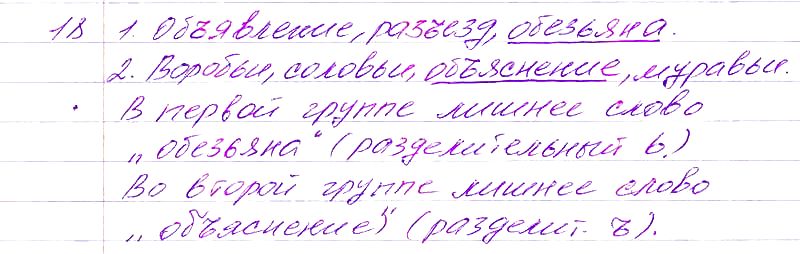 18 1. Объявление, разъезд, обезьяна.
2. Воробьи, соловьи, объяснение, муравьи.
В первой группе лишнее слово
„обезьяна“ (разделительный ь)
Во второй группе лишнее слово
„объяснение“ (разделит. ъ).